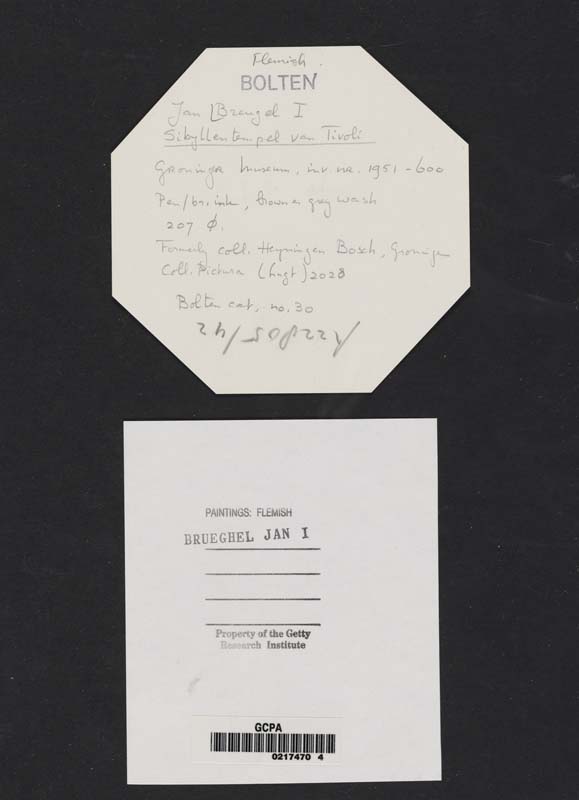 Flemish.
BOLTEN
Jan Breugel I
Sibyllentempel van Tivoli
Groninger museum, inv. nr. 1951-600
Pen/br. ink, brown & grey wash
207 Ø.
Formerly coll. Heyningen Bosch, Groningen
Coll. Pictura (Lugt) 2028
Bolten cat. no. 30
PAINTINGS: FLEMISH
BRUEGHEL JAN I
Property of the Getty
Research Institute
GCPA
0217470 4